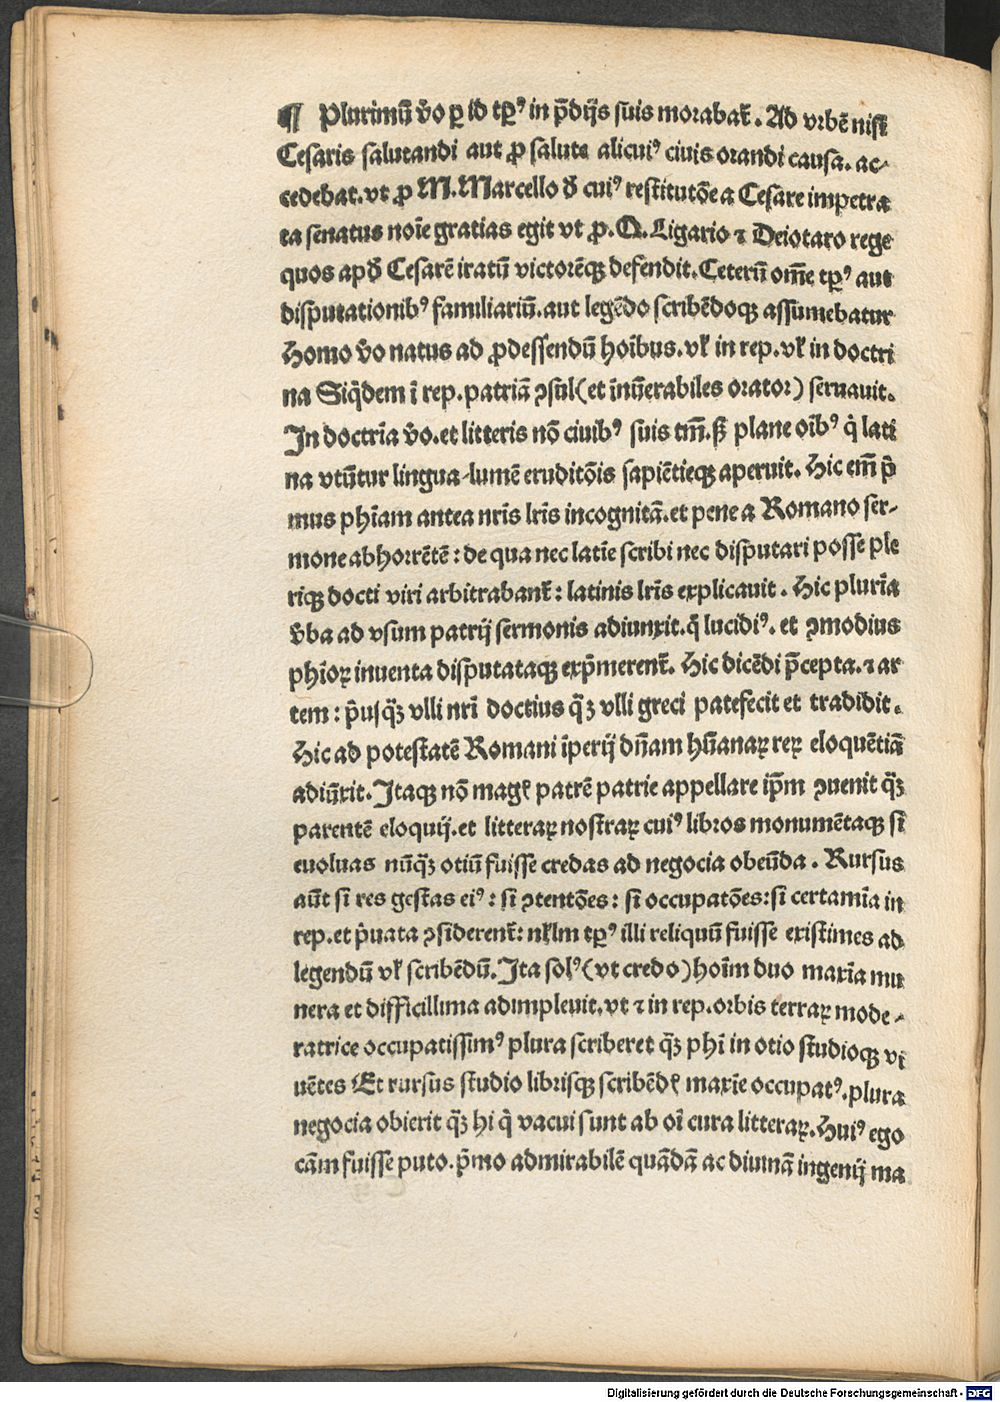 ¶ Plurimū v̄o ꝑ id tꝑꝰ in p̄dijs suis morabat᷑. Ad vrbē nisi
Cesaris salutandi aut ꝓ salute alicuiꝰ ciuis orandi causa. ac-
cedebat. vt ꝓ M. Marcello ꝺ̄ cuiꝰ restitutōe a Cesare impetra
ta senatus noīe gratias egit vt ꝓ. Q. Ligario ⁊ Deiotaro rege
quos apꝺ̄ Cesarē iratū victorēqꝫ defendit. Ceterū om̄e tꝑꝰ aut
disputationibꝰ familiariū. aut legēdo scribēdoqꝫ assumebatur
Homo v̄o natus ad ꝓdessendū hoībus. vꝉ in rep. vꝉ in doctri
na Siq̄dem ī rep. patriā ꝯsūl (et īnūerabiles orator) seruauit.
In doctrīa v̄o. et litteris nō ciuibꝰ suis tm̄. sꝫ plane oībꝰ q̄ lati
na vtūtur lingua-lumē eruditōis sapiētieqꝫ aperuit. Hic em̄ p̄
mus ph̄iam antea nr̄is lr̄is incognitā. et pene a Romano ser-
mone abhorrētē: de qua nec latīe scribi nec disputari posse ple
riqꝫ docti viri arbitrabant᷑: latinis lr̄is explicauit. Hic plurīa
v̄ba ad vsum patrij sermonis adiunxit. q̄ lucidiꝰ. et ꝯmodius
ph̄ioꝝ inuenta disputataqꝫ exp̄merent᷑. Hic dicēdi p̄cepta. ⁊ ar
tem: p̄usq̄ꝫ vlli nr̄i doctius q̄ꝫ vlli greci patefecit et tradidit.
Hic ad potestatē Romani īperij dn̄am hūanaꝝ reꝝ eloquētiā
adiūxit. Itaqꝫ nō magꝭ patrē patrie appellare ip̄m ꝯuenit q̄ꝫ
parentē eloquij. et litteraꝝ nostraꝝ cuiꝰ libros monumētaqꝫ si
euoluas nūq̄ꝫ otiū fuisse credas ad negocia obeūda. Rursus
aūt si res gestas eiꝰ: si ꝯtentōes: si occupatōes: si certamīa in
rep. et p̄uata ꝯsiderent᷑: nꝉlm tꝑꝰ illi reliquū fuisse existimes ad
legendū vꝉ scribēdū. Ita solꝰ (vt credo) hoīm duo maxīa mu
nera et difficillima adimpleuit. vt ⁊ in rep. orbis terraꝝ mode-
ratrice occupatissimꝰ plura scriberet q̄ꝫ ph̄i in otio studioqꝫ vi
uētes Et rursus studio librisqꝫ scribēdꝭ maxīe occupatꝰ. plura
negocia obierit q̄ꝫ hi q̄ vacui sunt ab oī cura litteraꝝ. Huiꝰ ego
cām fuisse puto. p̄mo admirabilē quādā ac diuinā ingenij ma
Digitalisierung gefördert durch die Deutsche Forschungsgemeinschaft - DFG